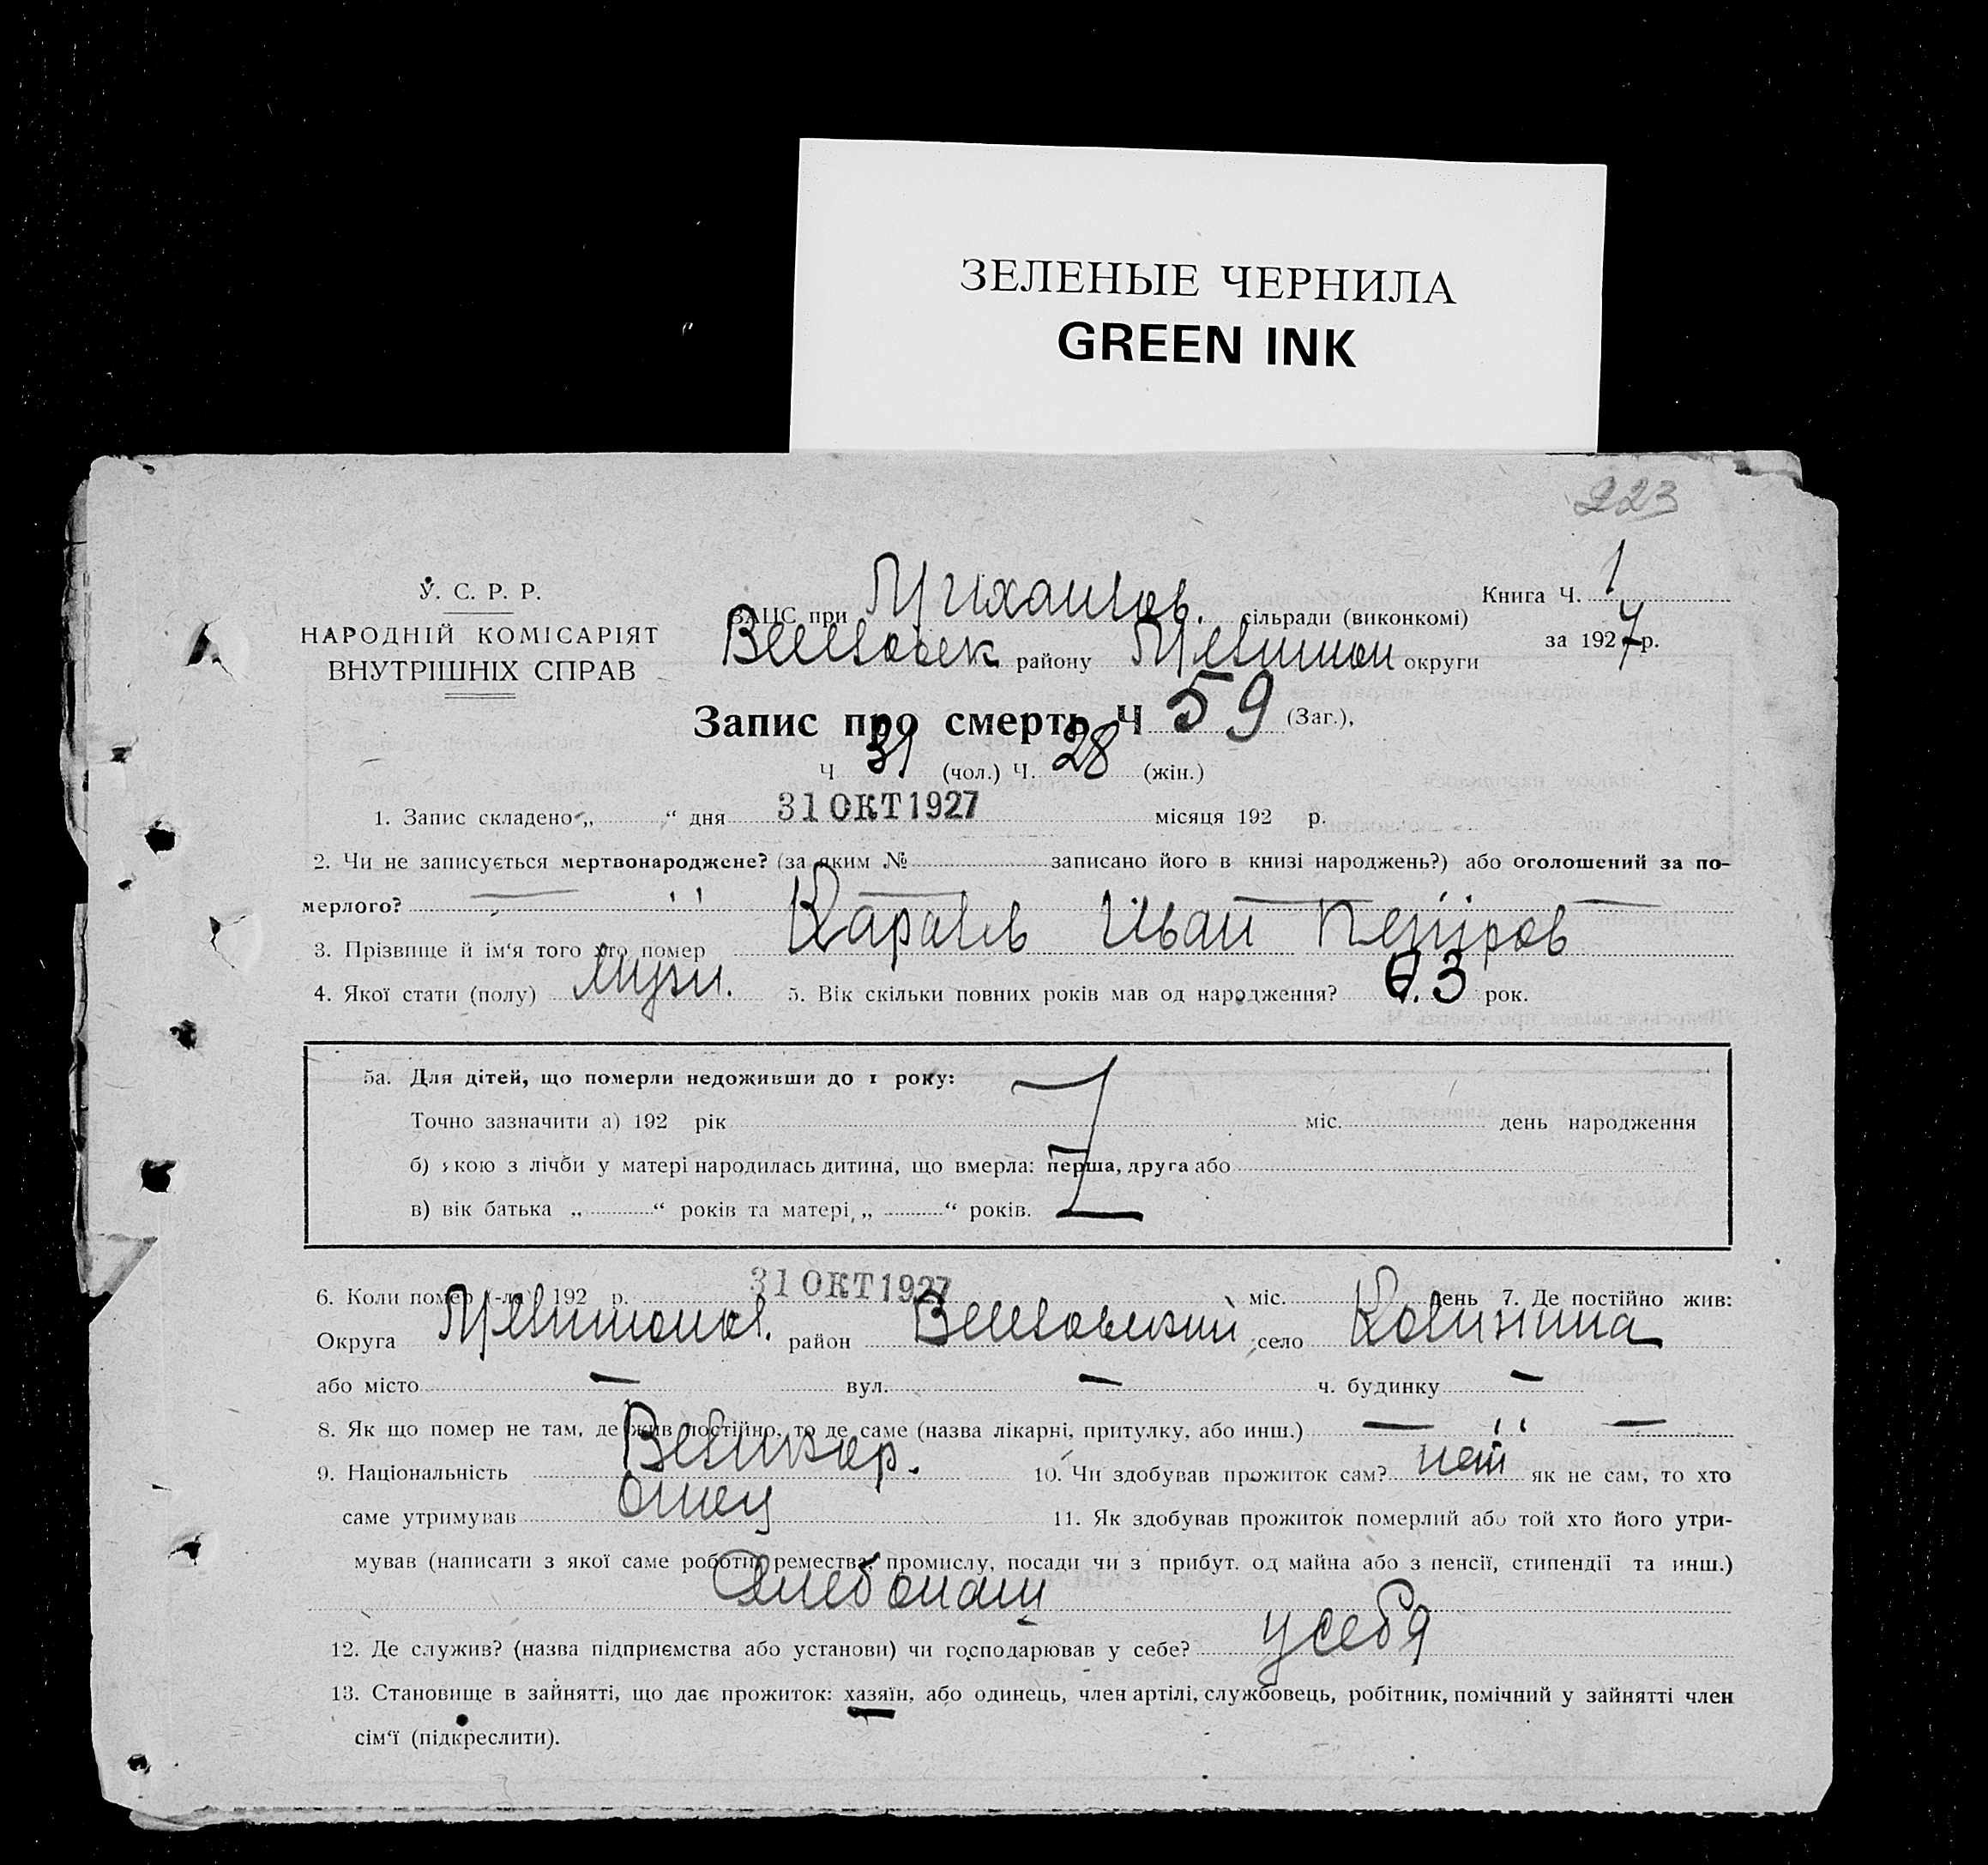 ЗЕЛЕНЫЕ ЧЕРНИЛА
GREEN INK
223
У. С. Р. Р.
НАРОДНІЙ КОМІСАРІЯТ
ВНУТРІШНІХ СПРАВ
ЗАЦС при Михайлов. сільради (виконкомі)
Книга Ч. 1
району округи
за 1927 р.
Запис про смерть Ч 59 (Заг.),
Ч 31 (чол.) Ч. 28 (жін.)
1. Запис складено „ “ дня 31 ОКТ 1927 місяця 192 р.
2. Чи не записується мертвонароджене? (за яким № записано його в книзі народжень?) або оголошений за по-
мерлого? — ! ! — —
3. Прізвище й ім‘я того хто помер Иван Петров
4. Якої стати (полу) Муж. 5. Вік скільки повних років мав од народження? 0.3 рок.
5а. Для дітей, що померли недоживши до 1 року:
Точно зазначити а) 192 рік міс. день народження
б) якою з лічби у матері народилась дитина, що вмерла: перша, друга або
в) вік батька „ “ років та матері „ “ років.
6. Коли помер (-ла) 192 р. 31 ОКТ 1927 міс. день 7. Де постійно жив:
Округа район село
або місто — вул. — ч. будинку —
8. Як що помер не там, де жив постійно, то де саме (назва лікарні, притулку, або инш.) — ! ! —
9. Національність Великор. 10. Чи здобував прожиток сам? нет як не сам, то хто
саме утримував отец 11. Як здобував прожиток померлий або той хто його утри-
мував (написати з якої саме роботи, ремества, промислу, посади чи з прибут. од майна або з пенсії, стипендії та инш.)
Хлебопаш
12. Де служив? (назва підприємства або установи) чи господарював у себе? у себя
13. Становище в зайнятті, що дає прожиток: хазяїн, або одинець, член артілі, службовець, робітник, помічний у зайнятті член
сім‘ї (підкреслити).